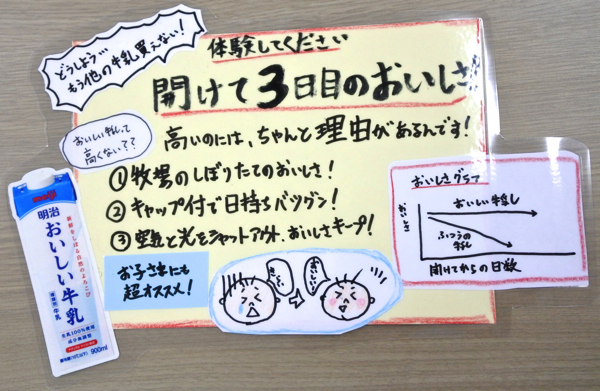 どうしよう…
もう他の牛乳買えない!
体験してください
開けて3日目のおいしさ
おいしい牛乳って
高くない??
高いのには、ちゃんと理由があるんです!
①牧場のしぼりたてのおいしさ!
②キャップ付で日持ちバツグン!
③空気と光をシャットアウト、おいしさキープ!
お子さまにも
超オススメ!
おいしい!
おいしさグラフ
おいしさ
おいしい牛乳
ふつうの
牛乳
開けてからの日数
meiji
明治
おいしい牛乳
新鮮なしぼる自然のよろこび
種類別 牛乳
生乳100%使用
成分無調整
900ml